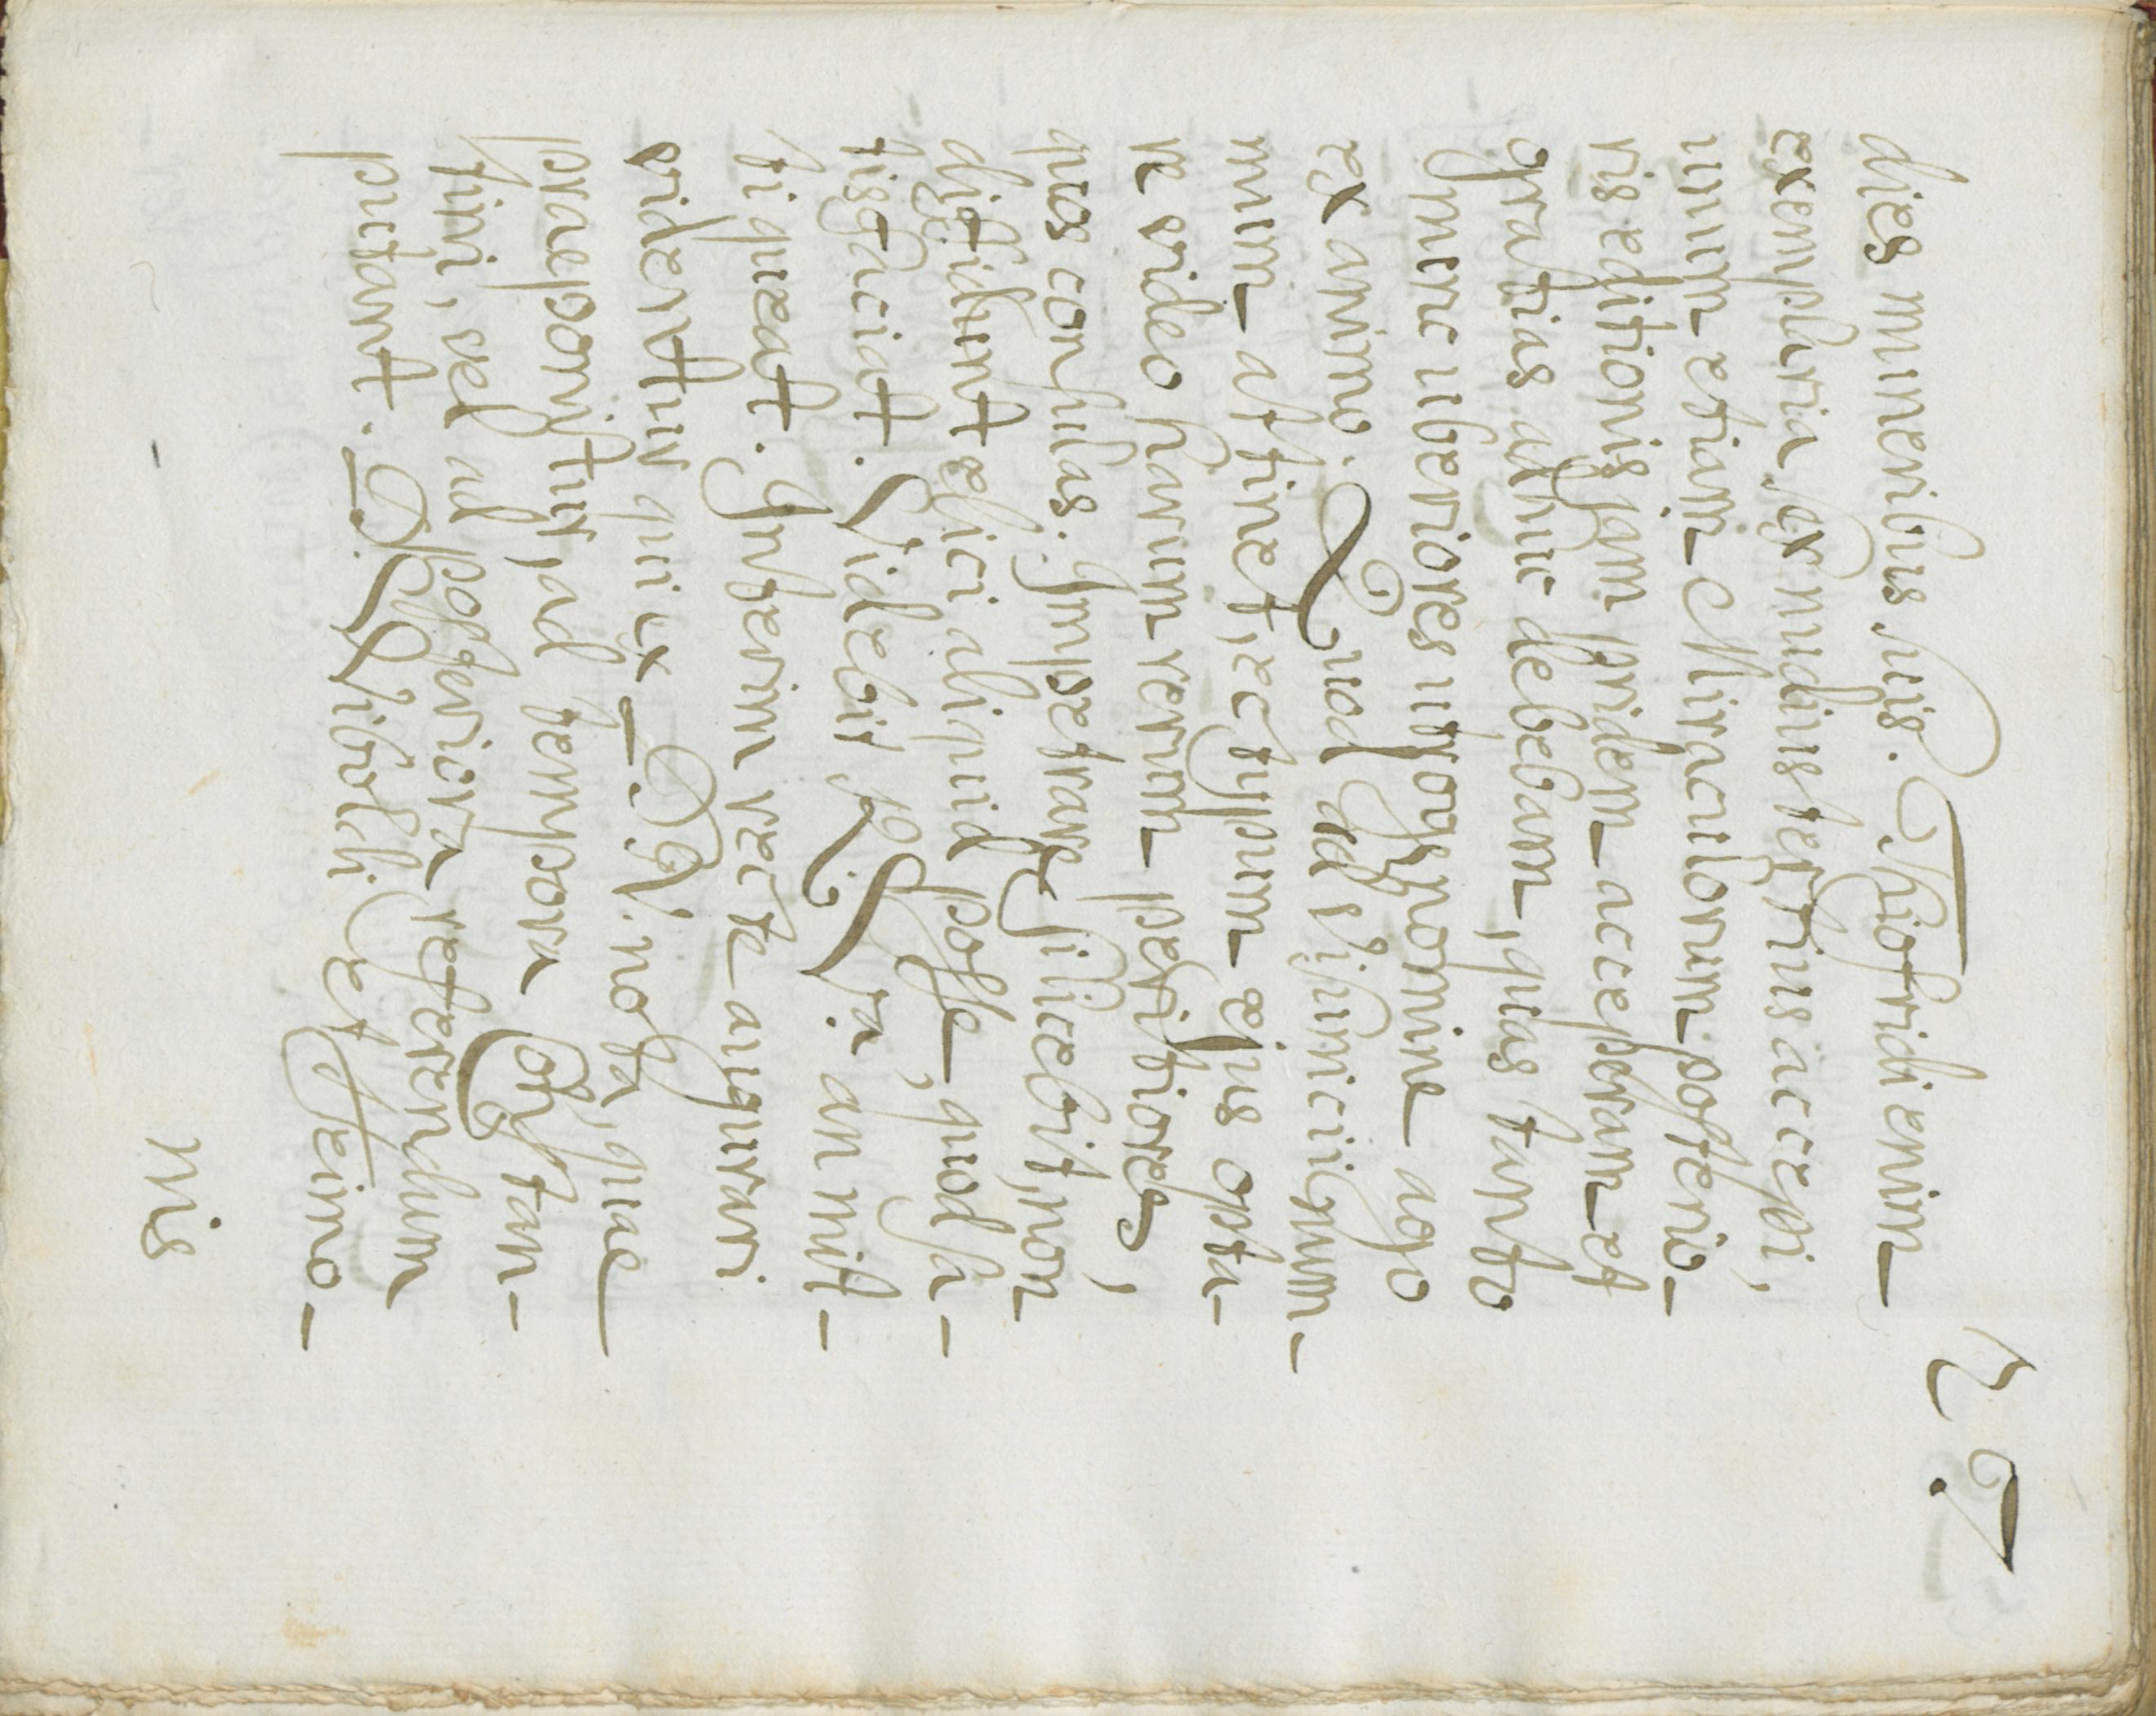 27.
dies muneribus suis. Thiofridi enim
exemplaria sex nudius tertius accepi,
unum etiam Miraculorum posterio-
ris editionis jam pridem acceperam et
gratias adhuc debebam, quas tanto
nunc uberiores utroque nomine ago
ex animo. Quod ad
mum attinet, ectypum ejus opta-
re video harum rerum peritiores,
quos consulas. Impetrare si licebit, non
diffidunt elici aliquid posse, quod sa-
tisfaciat. Videbit R. Vra an mit-
ti queat. Interim recte augurari
videntur qui ex D. N. nota, quae
praeponitur, ad tempora Con-
tini, vel ad posteriora referendum
putant. D. Wibolti et Heimo-
nis